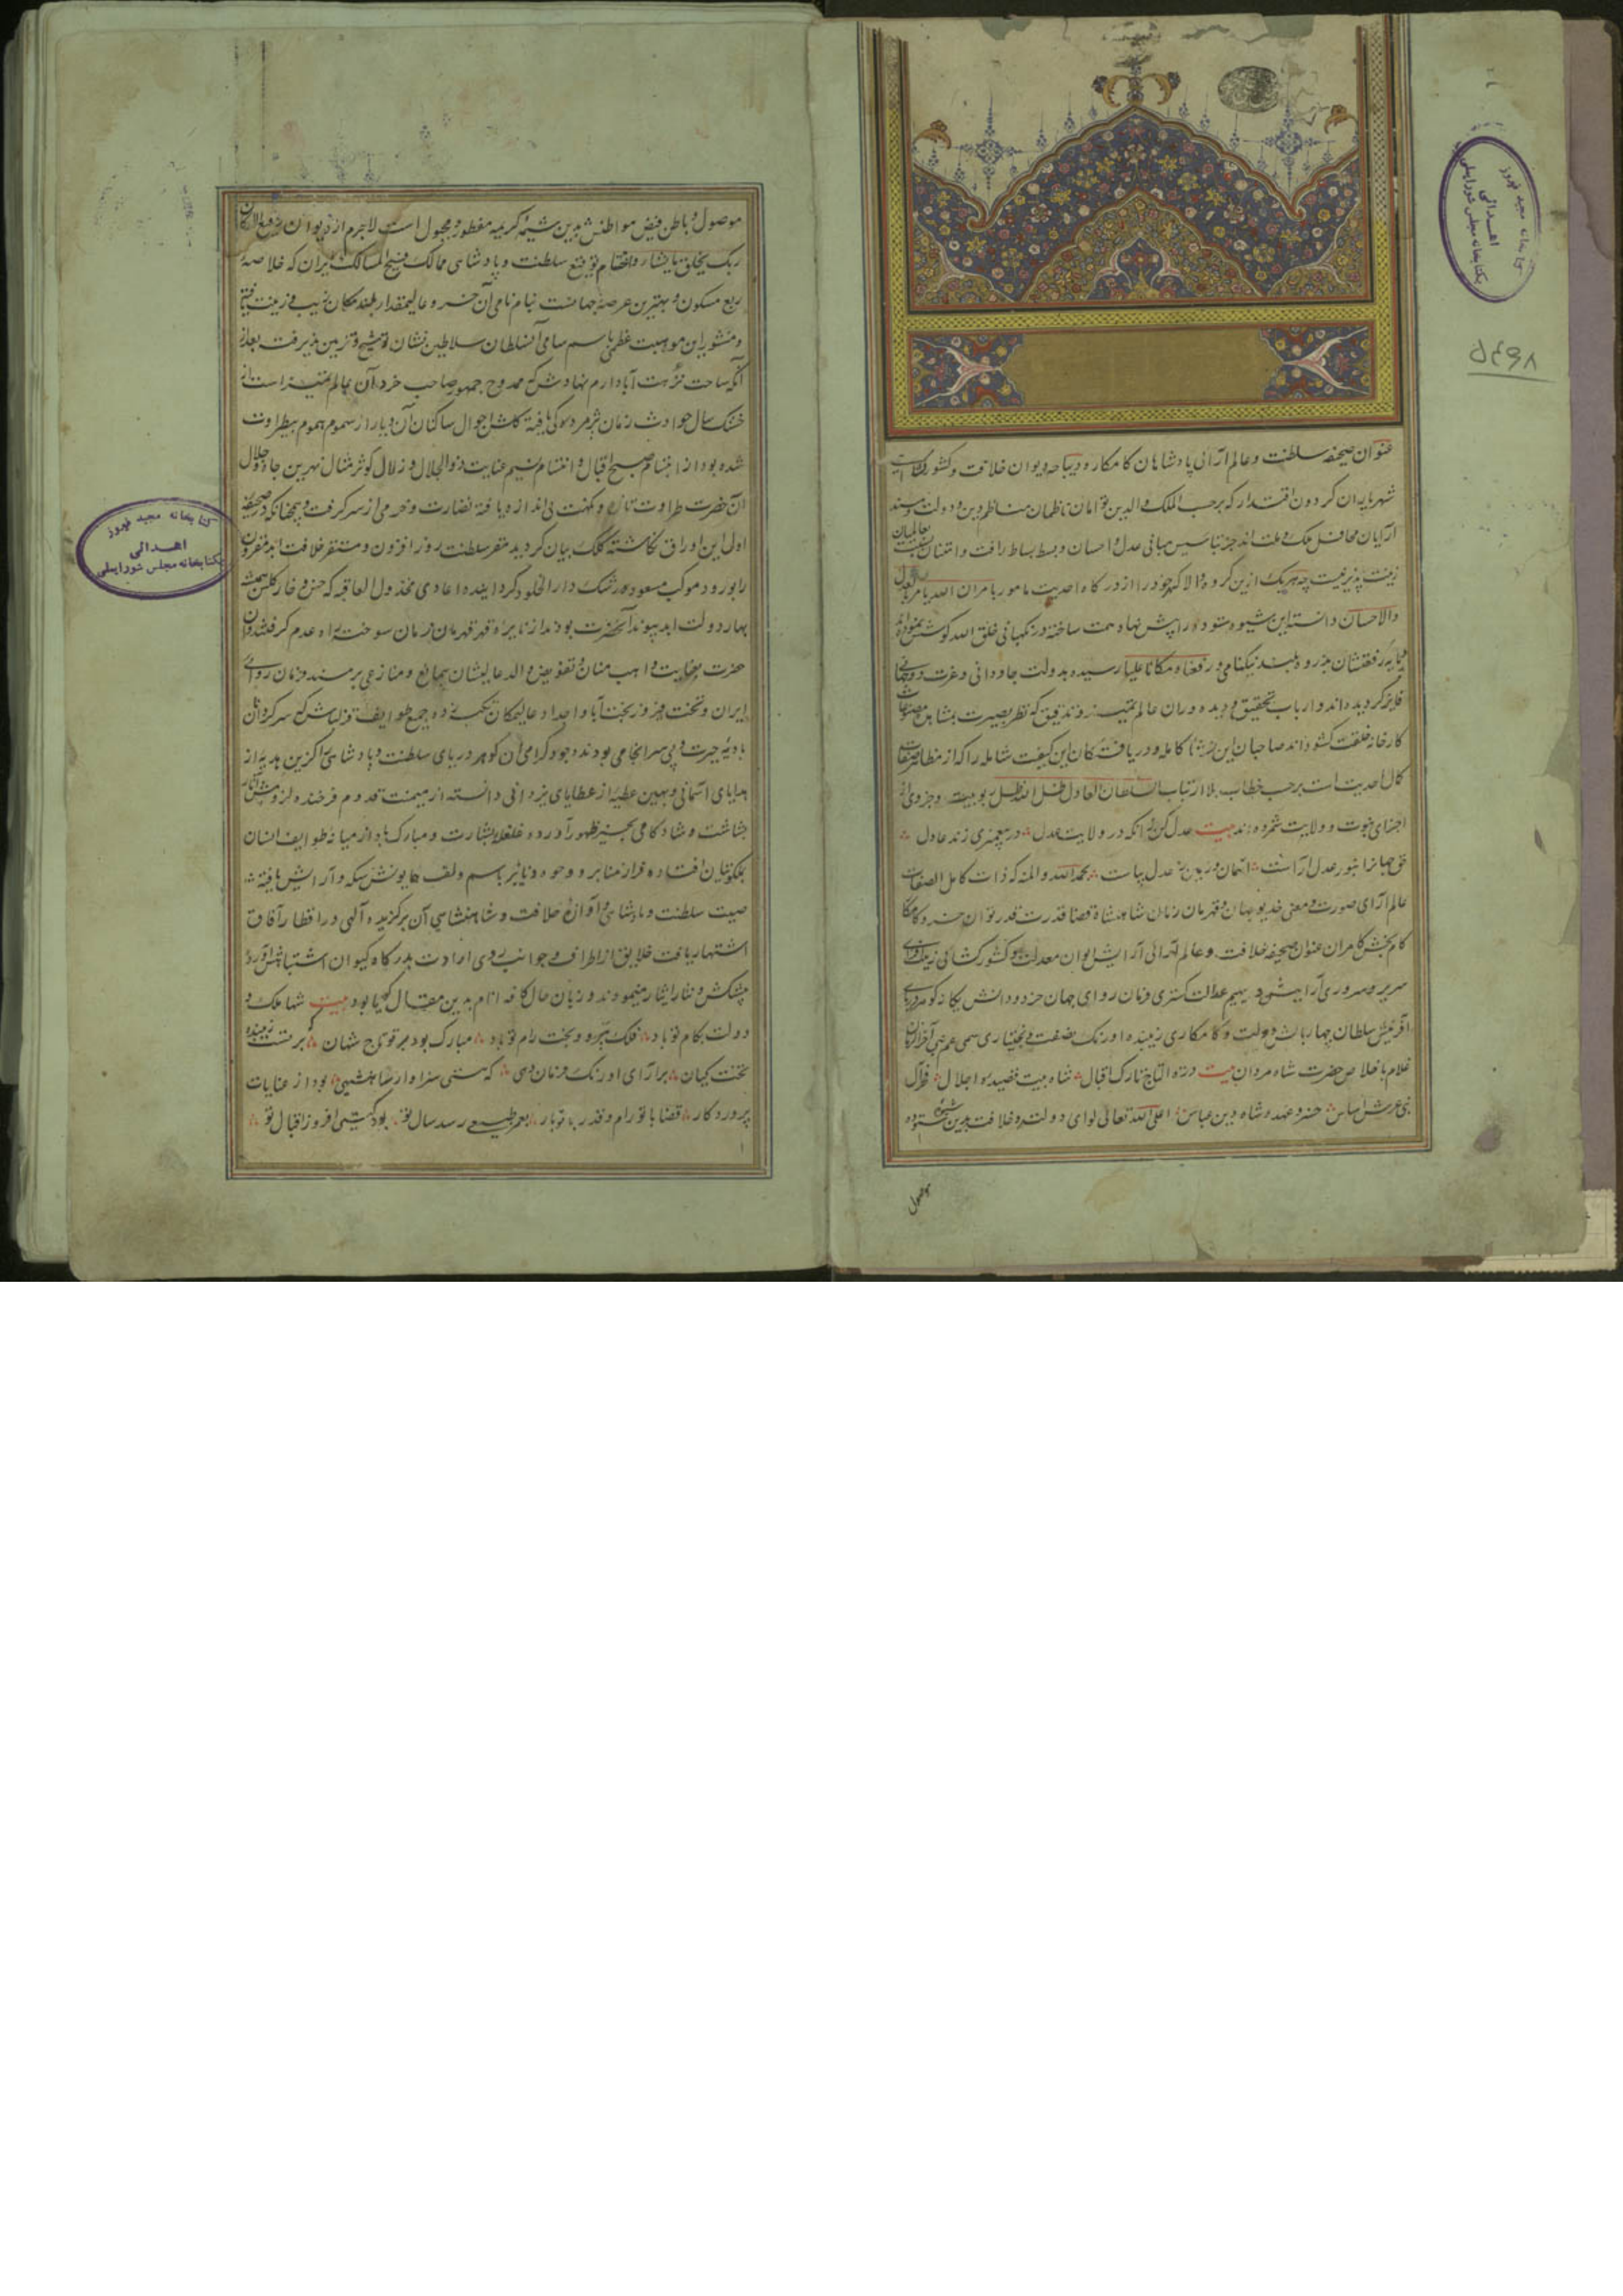 عنوان صحیفه سلطنت و عالم آرائی پادشاهان کامکار و دیباجه دیوان خلافت و کشور
شهریاران کردون اقتدار که برحسب الملک والدین توامان ناظمان مناظم دین و دولت و مسند
آرایان محافل ملک و ملت اند جز بتاسیس مبانی عدل و احسان و بسط بساط رافت و امتنان
زینت پذیر نیست چه هریک ازین کروه والا کهر خود را از درکاه احدیت مامور بامر ان الله یامر بالعدل
والاحسان دانسته این شیوه ستوده را پیش نهاد همت ساخته در نکهبانی خلق الله کوشش نموده اند
بذروه بلند نیکنامی و رفعناه مکانا علیا رسیده بدولت جاودانی و عزت
فایز کردیده اند و ارباب تحقیق و دیده وران عالم تمییز و تدقیق که نظر بصیرت بمشاهده
کارخانه خلقت کشوده اند صاحبان این نشاء کامله و دریافتکان این کیفیت شامله را که از مظاهر صفات
کمال احدیت است برحسب خطاب بلا ارتیاب السلطان العادل ظل الله ظل ربوبیته و جزوی از
اجزای نبوت و ولایت شمرده اند بیت عدل کن زانکه در ولایت عدل در پیغمبری زند عادل
حق جهانرا بنور عدل آراست آسمان و زمین ز عدل بپاست بحمد الله والمنه که ذات کامل الصفات
عالم آرای صورت و معنی خدیو جهان و قهرمان زمان شاهنشاه قضا قدرت قدر توان خسرو
کام بخش کامران عنوان صحیفه خلافت و عالم آرائی آرایش ایوان معدلت و کشور کشائی
سریر سروری آرایش دیهیم عدالت کستری فرمان روای جهان خرد و دانش یکانه کوهر دریای
آفرینش سلطان چهار بالش دولت و کامکاری زیبنده اورنک نصفت و بختیاری سمی عم نبی آخر الزمان
غلام باخلاص حضرت شاه مردان بیت درة التاج تارک اقبال شاه بیت قصیده اجلال
عرش اساس خسرو عهد شاه دین عباس اعلی الله تعالی لوای دولته و خلافته بدین شیوه ستوده
موصول
موصول و باطن فیض مواطنش بدین شیمه کریمه مفطور و مجبول است لاجرم از دیوان
ربک یخلق ما یشاء و اختتام توقیع سلطنت و پادشاهی ممالک فسیح المسالک ایران که خلاصه
ربع مسکون و بهترین عرصه جهانست بنام نامی آن خسرو عالیمقدار بلند مکان زیب و زینت
و منشور این موهبت عظمی باسم سامی آن سلطان سلاطین نشان توشیح و تزیین پذیرفت بعد از
آنکه ساحت نزهت آباد ارم نهادش که ممدوح جمهور صاحب خردان عالم تمییز است از
خشک سال حوادث زمان پژمردکی یافته کلشن احوال ساکنان آن دیار از سموم هموم بیطراوت
شده بود از ابتسام صبح اقبال و انتسام نسیم عنایت ذو الجلال و زلال کوثر مثال نهرین جاه و جلال
آن حضرت طراوت تازه و نکهت بی اندازه یافته نضارت و خرمی از سر کرفت و همچنانکه در صحیفه
اول این اوراق نکاشته کلک بیان کردید مقر سلطنت روز افزون و مستقر خلافت ابد مقرون
را بورود موکب مسعود رشک دار الخلود کردانیده اعادی مخذول العاقبه که خس و خار کلشن همیشه
بهار دولت ابد پیوند آنحضرت بودند از نایره قهر قهرمان زمان سوخت راه عدم کرفتند و آن
حضرت بعنایت واهب منان و تفویض والد عالیشان بیمانع و منازعی بر مسند فرمان روائی
ایران و تخت فیروز بخت آبا و اجداد عالیمکان تکیه زده جمیع طوایف قزلباش که سرکردان
بادیه حیرت و بی سر انجامی بودند وجود کرامی آن کوهر دریای سلطنت و پادشاهی را کزین هدیه از
هدایای آسمانی و بهین عطیه از عطایای یزدانی دانسته از میمنت قدوم فرخنده لزومش آثار
بشاشت و شادکامی بحیز ظهور آورده غلغله بشارت و مبارک باد از میانه طوایف انسان
بملکوتیان افتاده فراز منابر و وجوه دنانیر باسم و لقب همایونش سکه و آرایش یافته
صیت سلطنت و پادشاهی و آوازه خلافت و شاهنشاهی آن برکزیده آلهی در اقطار آفاق
اشتهار یافت خلایق از اطراف و جوانب روی ارادت بدرکاه کیوان اشتباهش آورده
پیشکش و نثار ایثار مینمودند و زبان حال کافه انام بدین مقال کویا بود بیت شها ملک و
دولت بکام تو باد فلک پیرو و بخت رام تو باد مبارک بود بر تو تاج شهان که بر تست زیبنده
تخت کیان برآرای اورنک فرمان دهی که هستی سزاوار شاهنشهی بود از عنایات
پروردکار قضا با تو رام و قدر با تو یار بعمر طبیعی رسد سال تو بود کیتی افروز اقبال تو
کتابخانه مجید فیروز
اهدائی
بکتابخانه مجلس شورایملی
کتابخانه مجید فیروز
اهدائی
بکتابخانه مجلس شورایملی